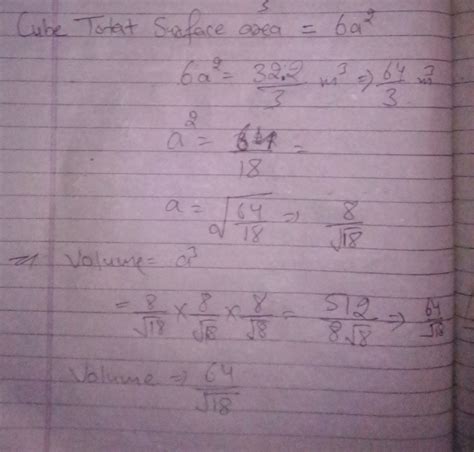 3
Cube Total Surface area = 6a²
6a² = 32.2/3 m³ ⇒ 64/3 m³
a² = 64/18 =
a = √(64/18) ⇒ 8/√18
⇒ Volume = a³
= 8/√18 × 8/√18 × 8/√18 = 512/8√8 ⇒ 64/√18
Volume ⇒ 64/√18